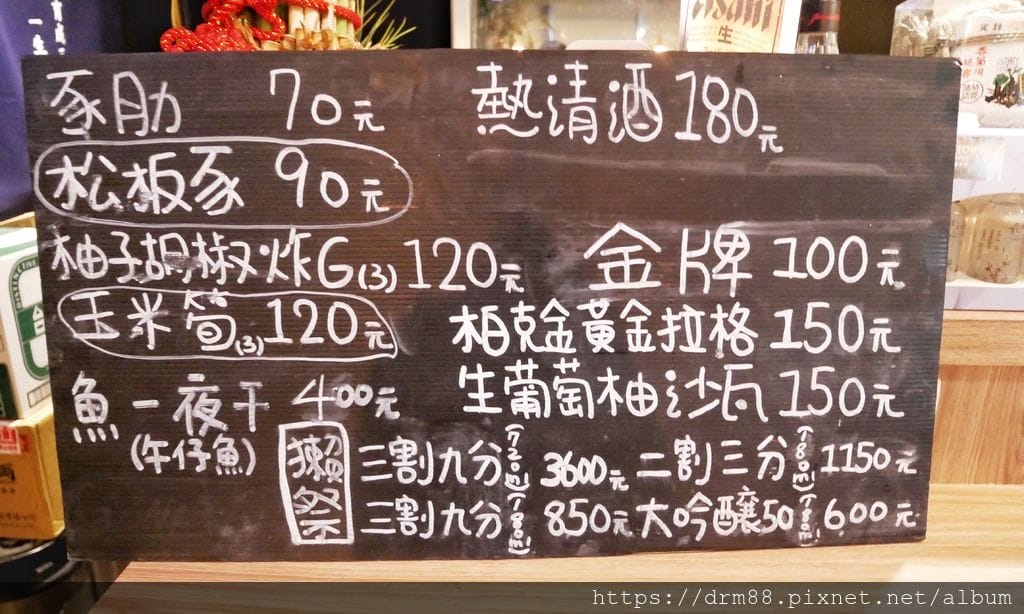 Asahi
生
豕肋 70元
熱清酒 180元
松板豕 90元
柚子胡椒炸G(3) 120元
金牌 100元
玉米筍(3) 120元
柏克金黃金拉格 150元
魚一夜干 400元
(午仔魚)
生葡萄柚沙瓦 150元
獺祭
三割九分(720ml) 3600元
二割三分(180ml) 1150元
三割九分(180ml) 850元
大吟釀50(180ml) 600元
https://drm88.pixnet.net/album